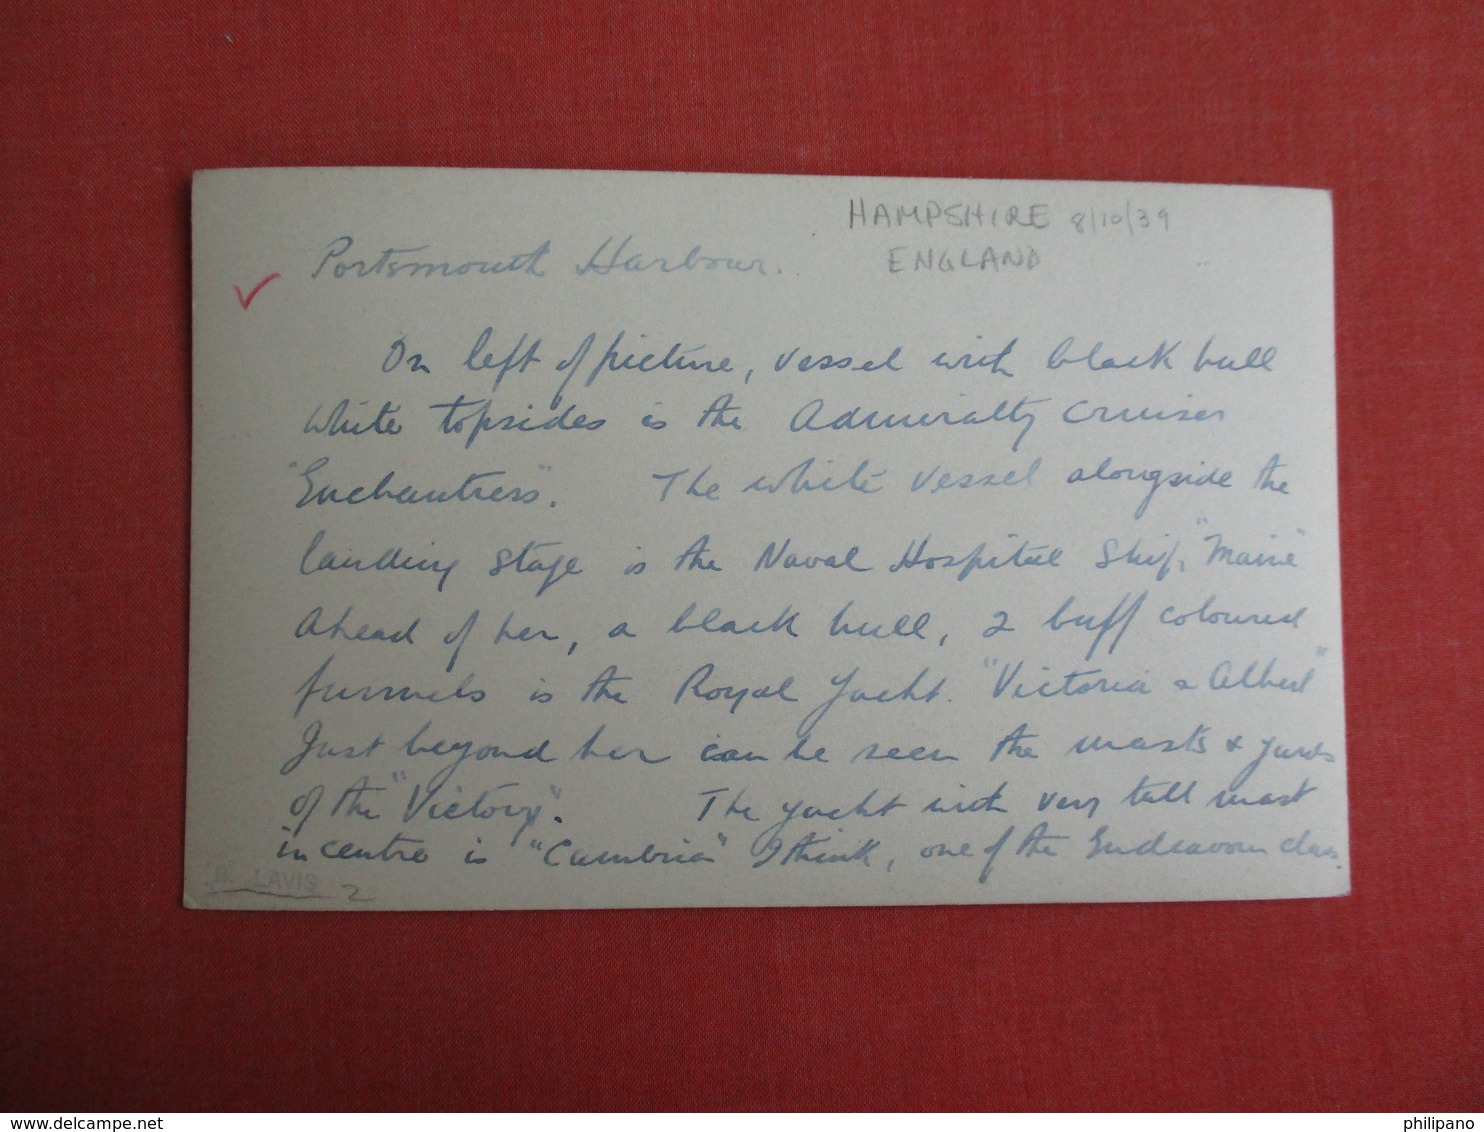 HAMPSHIRE 8/10/39
ENGLAND
Portsmouth Harbour.
On left of picture, vessel with black hull
White topsides is the Admiralty Cruiser
"Enchantress". The white vessel alongside the
landing stage is the Naval Hospital Ship, "Maine"
Ahead of her, a black hull, 2 buff coloured
funnels is the Royal Yacht. "Victoria & Albert"
Just beyond her can be seen the masts & yards
of the "Victory". The yacht with very tall mast
in centre is "Cambria" I think, one of the Endeavour class.
B. LAVIS 2
www.delcampe.net
philipano